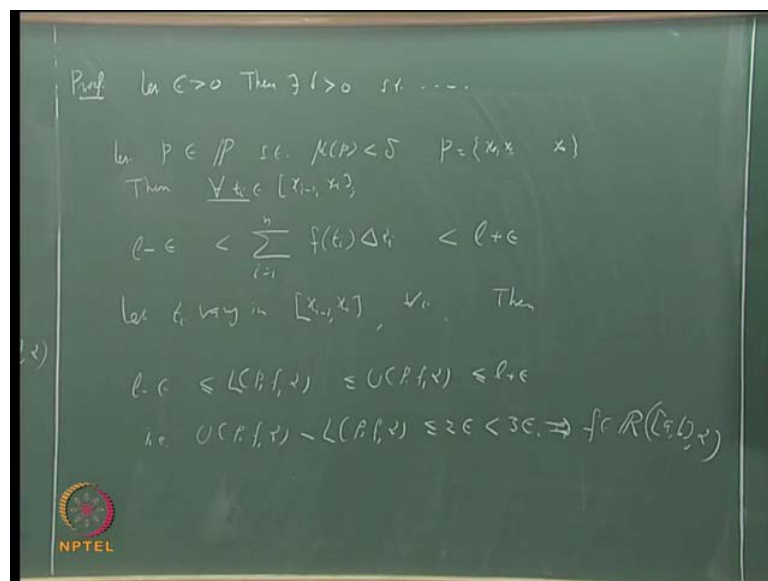 Proof. Let ϵ>0 Then ∃ δ>0 s.t. .....
Let P ∈ ℙ s.t. μ(P) < δ P = {x₀, x₁ xₙ}
Then ∀ tᵢ ∈ [xᵢ₋₁, xᵢ],
l-ϵ < ∑ᵢ₌₁ⁿ f(tᵢ) Δαᵢ < l+ϵ
Let tᵢ vary in [xᵢ₋₁, xᵢ], ∀ i. Then
l-ϵ ≤ L(P, f, α) ≤ U(P, f, α) ≤ l+ϵ
i.e. U(P, f, α) - L(P, f, α) ≤ 2ϵ < 3ϵ. ⇒ f ∈ ℝ([a,b], α)
, α)
NPTEL